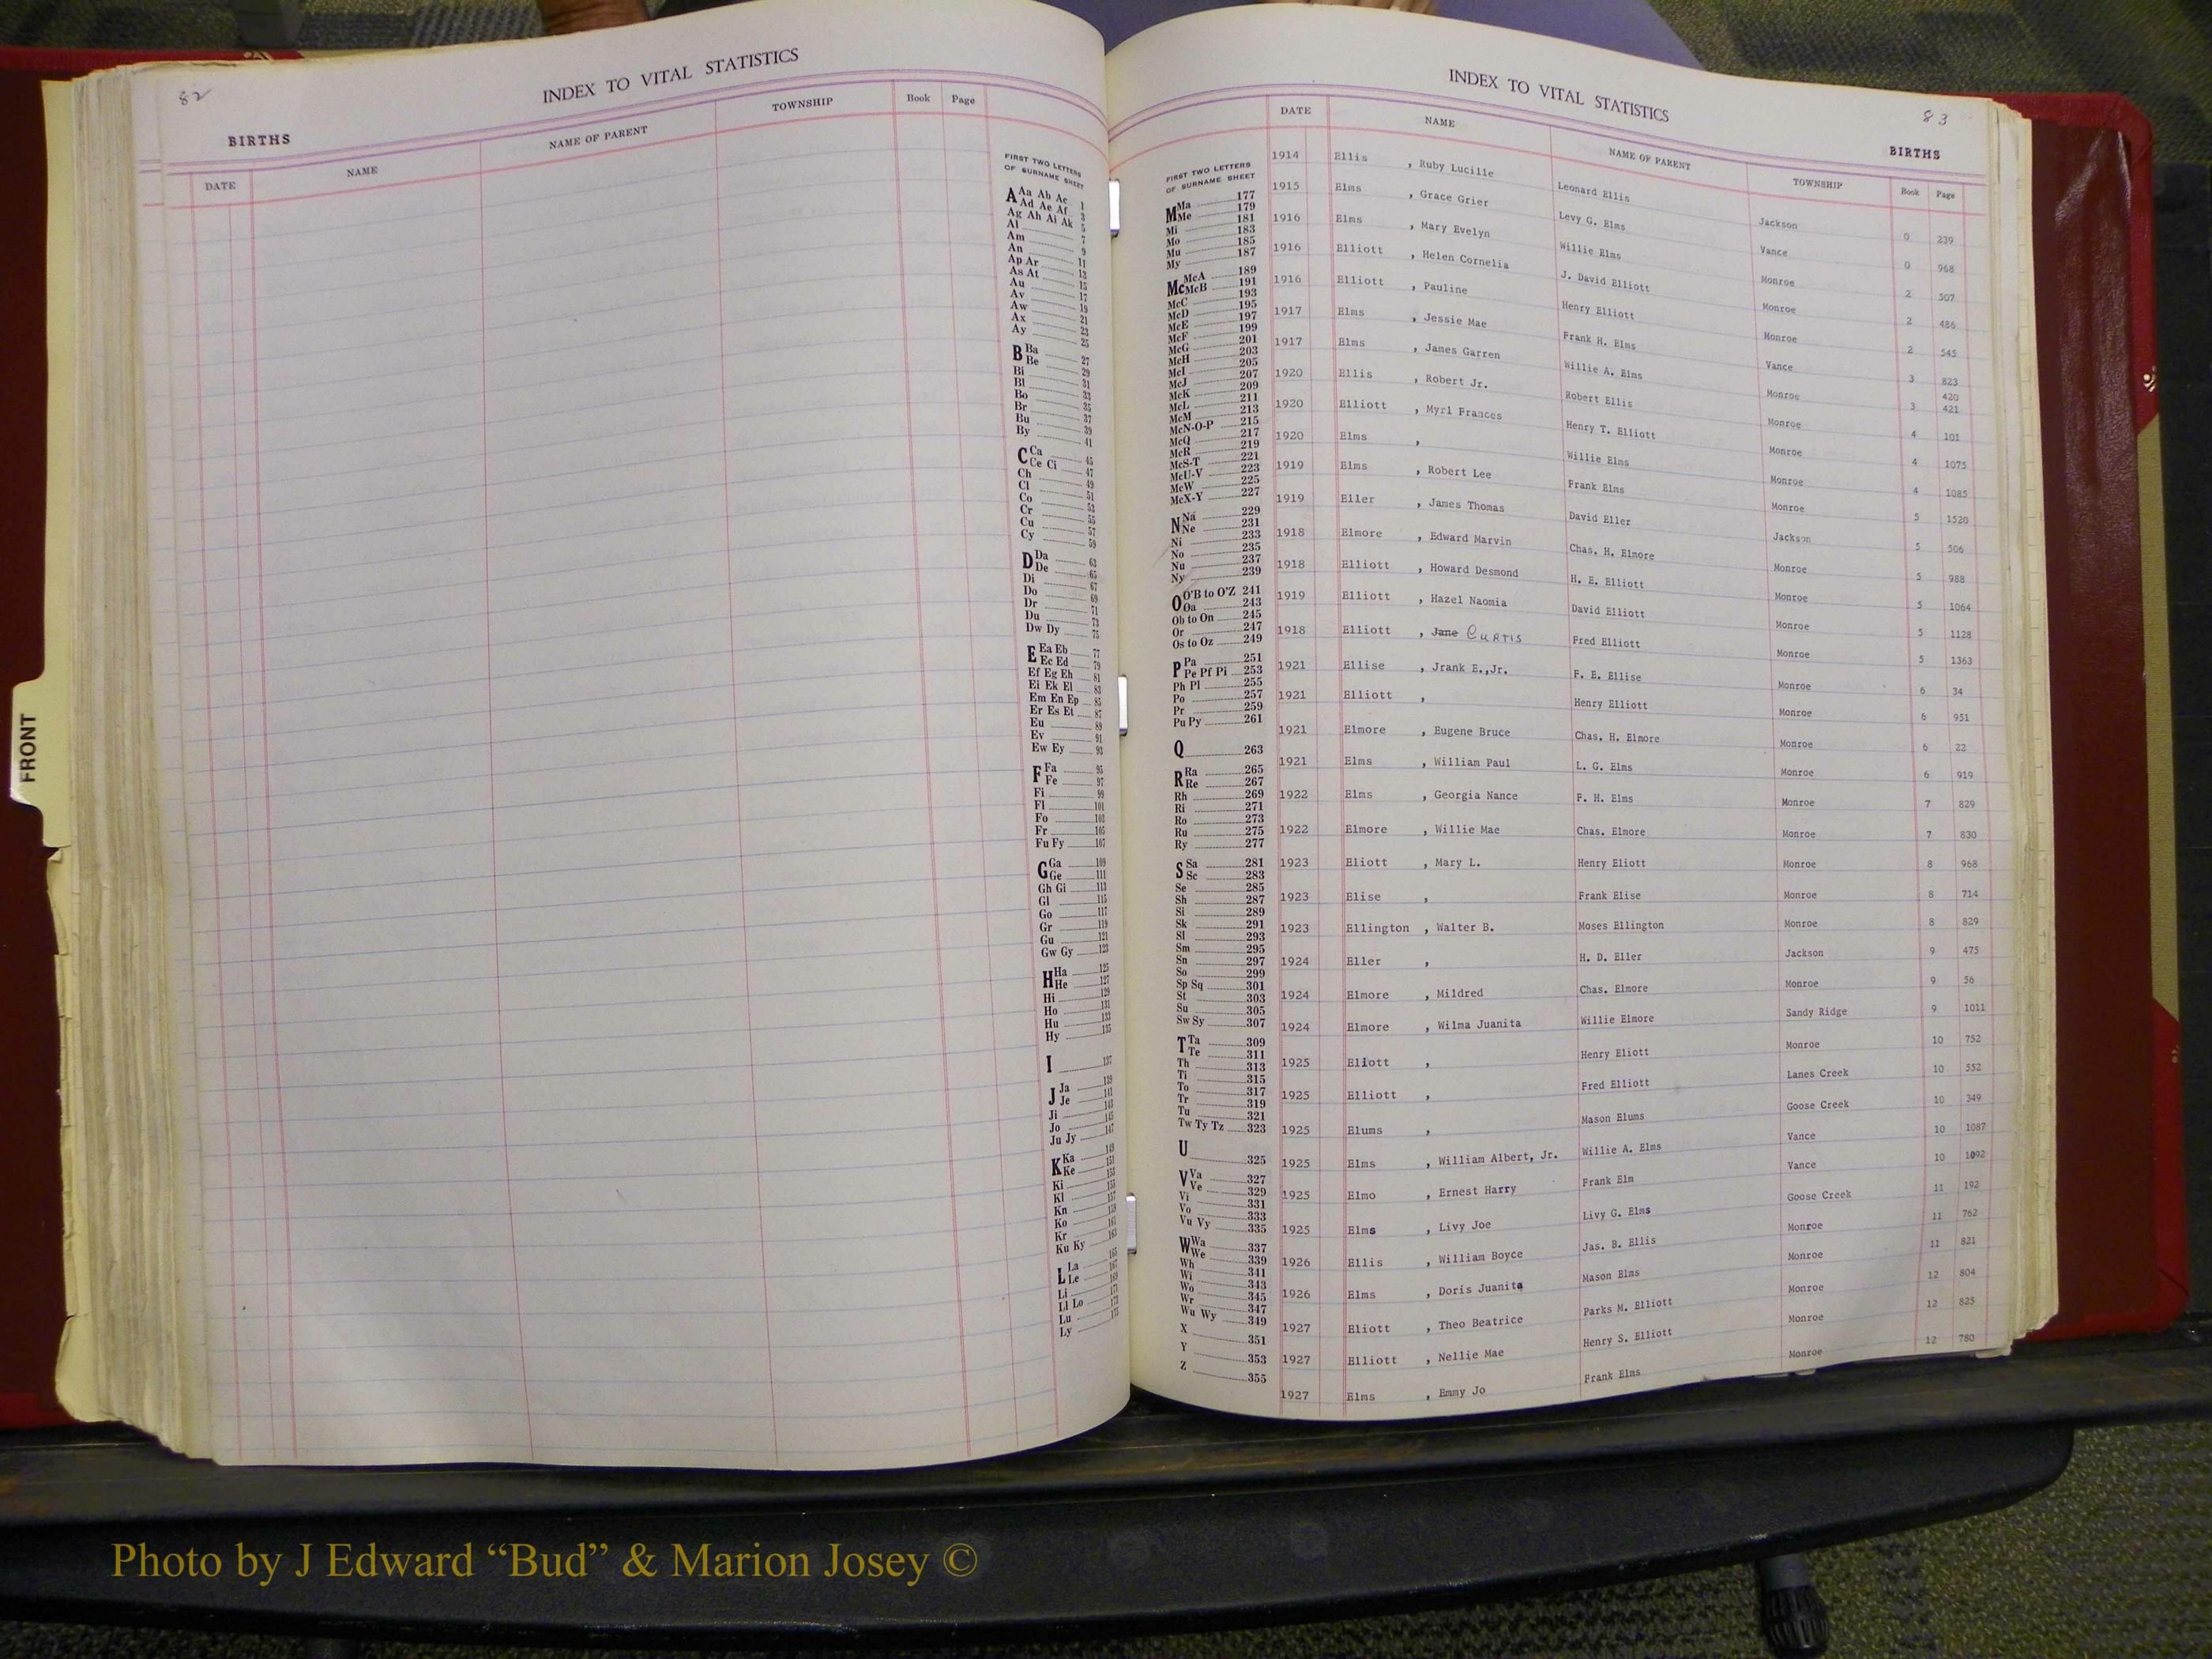 82
INDEX TO VITAL STATISTICS
BIRTHS
DATE NAME NAME OF PARENT TOWNSHIP Book Page
FIRST TWO LETTERS
OF SURNAME SHEET
A Aa Ab Ac 1
Ad Ae Af 3
Ag Ah Ai Ak 5
Al 7
Am 9
An 11
Ap Ar 13
As At 15
Au 17
Av 19
Aw 21
Ax 23
Ay 25
B Ba 27
Be 29
Bi 31
Bl 33
Bo 35
Br 37
Bu 39
By 41
C Ca 45
Ce Ci 47
Ch 49
Cl 51
Co 53
Cr 55
Cu 57
Cy 59
D Da 63
De 65
Di 67
Do 69
Dr 71
Du 73
Dw Dy 75
E Ea Eb 77
Ec Ed 79
Ef Eg Eh 81
Ei Ek El 83
Em En Ep 85
Er Es Et 87
Eu 89
Ev 91
Ew Ey 93
F Fa 95
Fe 97
Fi 99
Fl 101
Fo 103
Fr 105
Fu Fy 107
G Ga 109
Ge 111
Gh Gi 113
Gl 115
Go 117
Gr 119
Gu 121
Gw Gy 123
H Ha 125
He 127
Hi 129
Ho 131
Hu 133
Hy 135
I 137
J Ja 139
Je 141
Ji 143
Jo 145
Ju Jy 147
K Ka 149
Ke 151
Ki 153
Kl 155
Kn 157
Ko 159
Kr 161
Ku Ky 163
L La 165
Le 167
Li 169
Ll Lo 171
Lu 173
Ly 175
INDEX TO VITAL STATISTICS
83
BIRTHS
DATE NAME NAME OF PARENT TOWNSHIP Book Page
FIRST TWO LETTERS
OF SURNAME SHEET
M Ma 177
Me 179
Mi 181
Mo 183
Mu 185
My 187
Mc McA 189
McB 191
McC 193
McD 195
McE 197
McF 199
McG 201
McH 203
McI 205
McJ 207
McK 209
McL 211
McM 213
McN-O-P 215
McQ 217
McR 219
McS-T 221
McU-V 223
McW 225
McX-Y 227
N Na 229
Ne 231
Ni 233
No 235
Nu 237
Ny 239
O O'B to O'Z 241
Oa 243
Ob to On 245
Or 247
Os to Oz 249
P Pa 251
Pe Pf Pi 253
Ph Pl 255
Po 257
Pr 259
Pu Py 261
Q 263
R Ra 265
Re 267
Rh 269
Ri 271
Ro 273
Ru 275
Ry 277
S Sa 281
Sc 283
Se 285
Sh 287
Si 289
Sk 291
Sl 293
Sm 295
Sn 297
So 299
Sp Sq 301
St 303
Su 305
Sw Sy 307
T Ta 309
Te 311
Th 313
Ti 315
To 317
Tr 319
Tu 321
Tw Ty Tz 323
U 325
V Va 327
Ve 329
Vi 331
Vo 333
Vu Vy 335
W Wa 337
We 339
Wh 341
Wi 343
Wo 345
Wr 347
Wu Wy 349
X 351
Y 353
Z 355
1914 Ellis , Ruby Lucille Leonard Ellis Jackson 0 239
1915 Elms , Grace Grier Levy G. Elms Vance 0 968
1916 Elms , Mary Evelyn Willie Elms Monroe 2 507
1916 Elliott , Helen Cornelia J. David Elliott Monroe 2 486
1916 Elliott , Pauline Henry Elliott Monroe 2 545
1917 Elms , Jessie Mae Frank H. Elms Vance 3 823
1917 Elms , James Garren Willie A. Elms Monroe 3 420 421
1920 Ellis , Robert Jr. Robert Ellis Monroe 4 101
1920 Elliott , Myrl Frances Henry T. Elliott Monroe 4 1075
1920 Elms , Willie Elms Monroe 4 1085
1919 Elms , Robert Lee Frank Elms Monroe 5 1520
1919 Eller , James Thomas David Eller Jackson 5 506
1918 Elmore , Edward Marvin Chas. H. Elmore Monroe 5 988
1918 Elliott , Howard Desmond H. E. Elliott Monroe 5 1064
1919 Elliott , Hazel Naomia David Elliott Monroe 5 1128
1918 Elliott , Jane CURTIS Fred Elliott Monroe 5 1363
1921 Ellise , Jrank E.,Jr. F. E. Ellise Monroe 6 34
1921 Elliott , Henry Elliott Monroe 6 951
1921 Elmore , Eugene Bruce Chas. H. Elmore Monroe 6 22
1921 Elms , William Paul L. G. Elms Monroe 6 919
1922 Elms , Georgia Nance F. H. Elms Monroe 7 829
1922 Elmore , Willie Mae Chas. Elmore Monroe 7 830
1923 Eliott , Mary L. Henry Eliott Monroe 8 968
1923 Elise , Frank Elise Monroe 8 714
1923 Ellington , Walter B. Moses Ellington Monroe 8 829
1924 Eller , H. D. Eller Jackson 9 475
1924 Elmore , Mildred Chas. Elmore Monroe 9 56
1924 Elmore , Wilma Juanita Willie Elmore Sandy Ridge 9 1011
1925 Eliott , Henry Eliott Monroe 10 752
1925 Elliott , Fred Elliott Lanes Creek 10 552
1925 Elums , Mason Elums Goose Creek 10 349
1925 Elms , William Albert, Jr. Willie A. Elms Vance 10 1087
1925 Elmo , Ernest Harry Frank Elm Vance 10 1092
1925 Elms , Livy Joe Livy G. Elms Goose Creek 11 192
1926 Ellis , William Boyce Jas. B. Ellis Monroe 11 762
1926 Elms , Doris Juanita Mason Elms Monroe 11 821
1927 Eliott , Theo Beatrice Parks M. Elliott Monroe 12 804
1927 Elliott , Nellie Mae Henry S. Elliott Monroe 12 825
1927 Elms , Emmy Jo Frank Elms Monroe 12 780
FRONT
Photo by J Edward “Bud” & Marion Josey ©